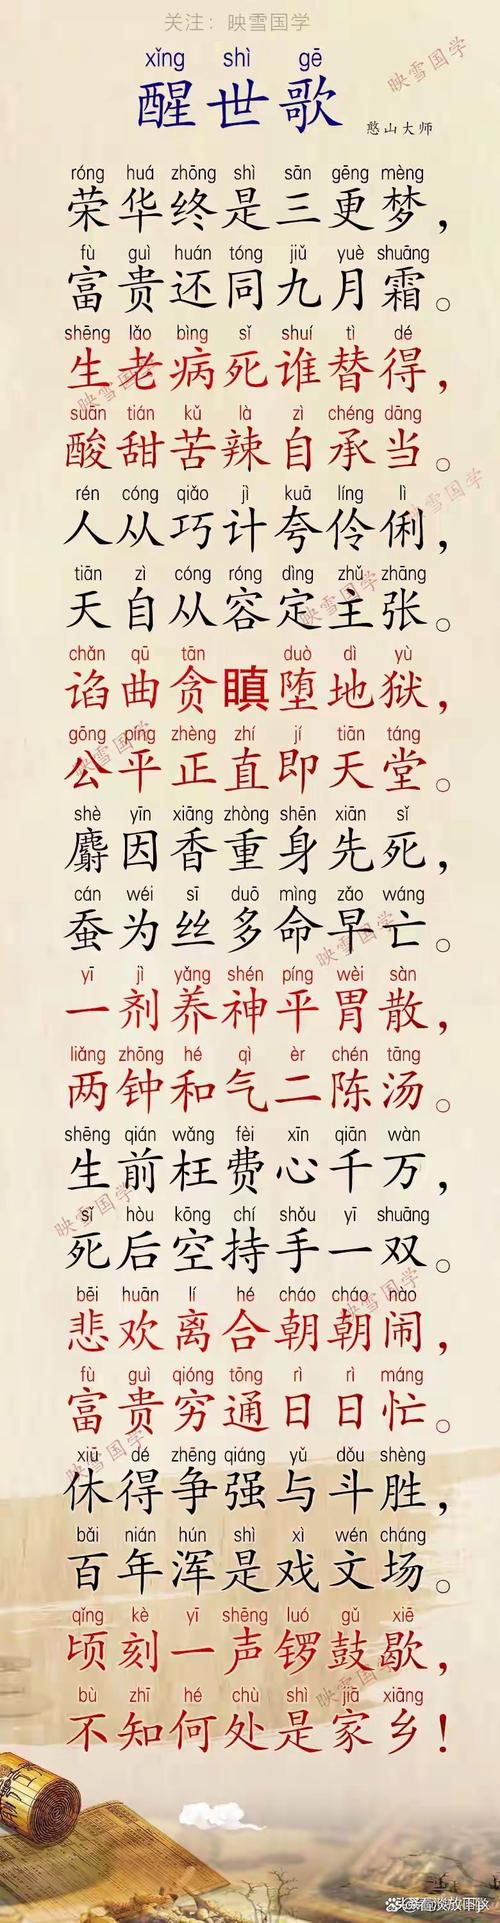 关注：映雪国学
xǐng shì gē
醒世歌
憨山大师
映雪国学
róng huá zhōng shì sān gēng mèng
荣华终是三更梦，
fù guì huán tóng jiǔ yuè shuāng
富贵还同九月霜。
shēng lǎo bìng sǐ shuí tì dé
生老病死谁替得，
映雪国学
suān tián kǔ là zì chéng dāng
酸甜苦辣自承当。
rén cóng qiǎo jì kuā líng lì
人从巧计夸伶俐，
映雪国学
tiān zì cóng róng dìng zhǔ zhāng
天自从容定主张。
映雪国学
chǎn qū tān duò dì yù
谄曲贪瞋堕地狱，
gōng píng zhèng zhí jí tiān táng
公平正直即天堂。
映雪国学
shè yīn xiāng zhòng shēn xiān sǐ
麝因香重身先死，
cán wéi sī duō mìng zǎo wáng
蚕为丝多命早亡。
映雪国学
yī jì yǎng shén píng wèi sàn
一剂养神平胃散，
liǎng zhōng hé qì èr chén tāng
两钟和气二陈汤。
shēng qián wǎng fèi xīn qiān wàn
生前枉费心千万，
映雪国学
sǐ hòu kōng chí shǒu yī shuāng
死后空持手一双。
bēi huān lí hé cháo cháo nào
悲欢离合朝朝闹，
映雪国学
fù guì qióng tōng rì rì máng
富贵穷通日日忙。
映雪国学
xiū dé zhēng qiáng yǔ dǒu shèng
休得争强与斗胜，
bǎi nián hún shì xì wén cháng
百年浑是戏文场。
qǐng kè yī shēng luó gǔ xiē
顷刻一声锣鼓歇，
映雪国学
bù zhī hé chù shì jiā xiāng
不知何处是家乡！